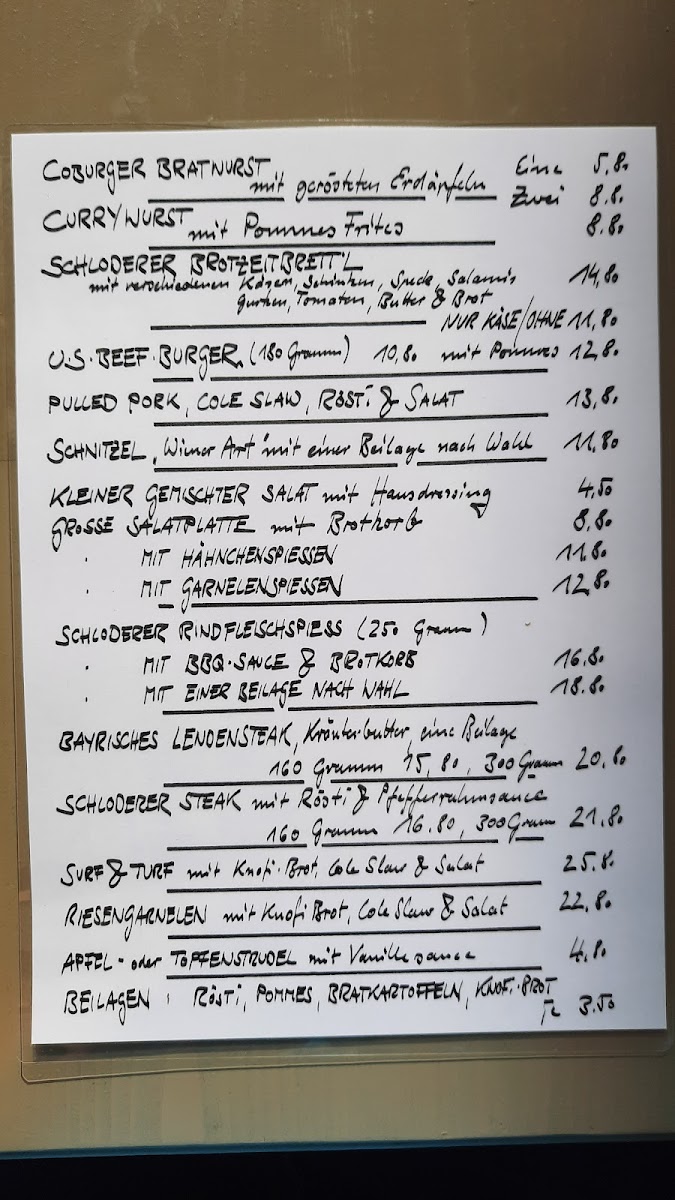 COBURGER BRATWURST Eine 5,80
mit gerösteten Erdäpfeln Zwei 8.80
CURRYWURST mit Pommes Frites 8.80
SCHLODERER BROTZEITBRETT'L
mit verschiedenen Käsen, Schinken, Speck, Salamis 14,80
Gurken, Tomaten, Butter & Brot
NUR KÄSE/OHNE 11,80
U.S. BEEF-BURGER (180 Gramm) 10,80 mit Pommes 12,80
PULLED PORK, COLE SLAW, RÖSTI & SALAT 13,80
SCHNITZEL „Wiener Art" mit einer Beilage nach Wahl 11,80
KLEINER GEMISCHTER SALAT mit Hausdressing 4.50
GROSSE SALATPLATTE mit Brotkorb 8.80
" MIT HÄHNCHENSPIESSEN 11.80
" MIT GARNELENSPIESSEN 12,80
SCHLODERER RINDFLEISCHSPIESS (250 Gramm)
" MIT BBQ-SAUCE & BROTKORB 16.80
" MIT EINER BEILAGE NACH WAHL 18.80
BAYRISCHES LENDENSTEAK, Kräuterbutter, eine Beilage
160 Gramm 15,80, 300 Gramm 20,80
SCHLODERER STEAK mit Rösti & Pfefferrahmsauce
160 Gramm 16.80, 300 Gramm 21,80
SURF & TURF mit Knofi-Brot, Cole Slaw & Salat 25,80
RIESENGARNELEN mit Knofi Brot, Cole Slaw & Salat 22,80
APFEL- oder TOPFENSTRUDEL mit Vanillesauce 4.80
BEILAGEN: RÖSTI, POMMES, BRATKARTOFFELN, KNOFI-BROT
3.50